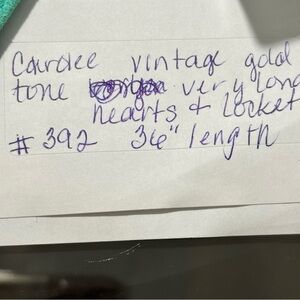 Carolee vintage gold
tone very long
hearts + locket
# 392 36" length